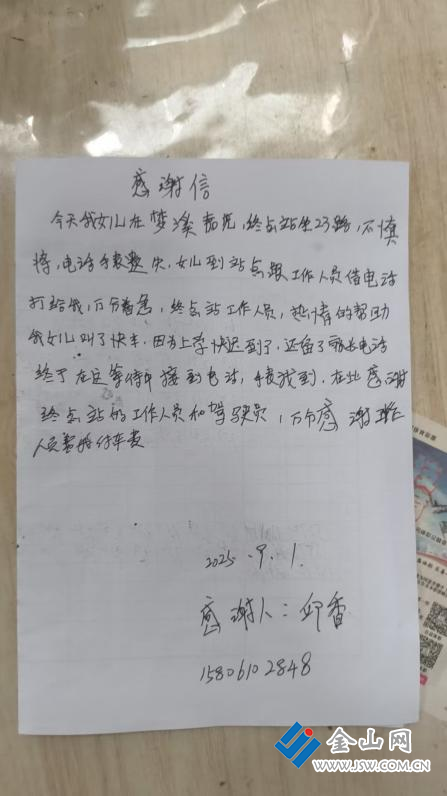 感谢信
今天我女儿在梦溪嘉苑,终点站坐23路,不慎
将,电话手表丢失,女儿到站点跟工作人员借电话
打给我,万分着急,终点站工作人员,热情的帮助
我女儿叫了快车,因为上学快迟到了,还留了电话
终于在等待中接到电话,手表找到,在此感谢
终点站的工作人员和驾驶员,万分感谢
人员帮付车费
2025.9.1.
感谢人:邱香
15806102848
金山网
WWW.JSW.COM.CN